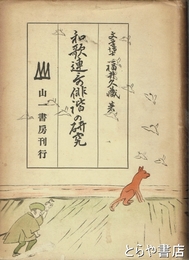 文学博士 福井久藏 著
和歌連歌俳諧の研究
山一書房刊行
とらや書店